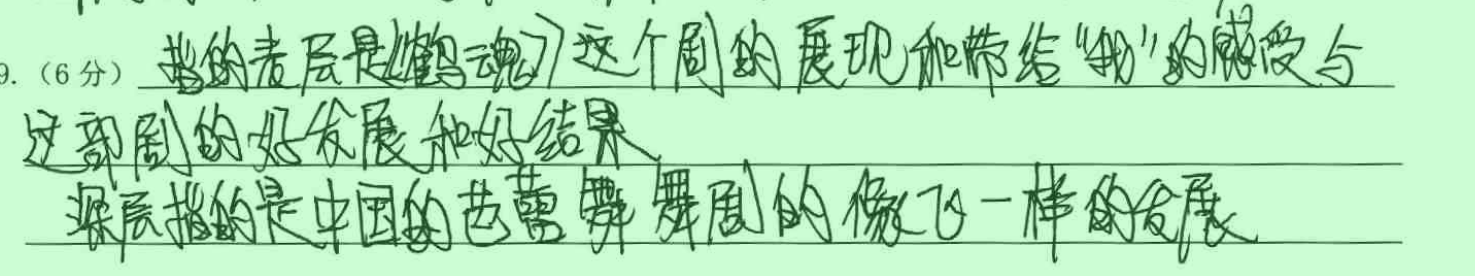 9.（6分）指的表层是《鹤魂》这个剧的展现和带给“我”的感受与
这部剧的好发展和好结果
深层指的是中国的芭蕾舞舞剧的像飞一样的发展